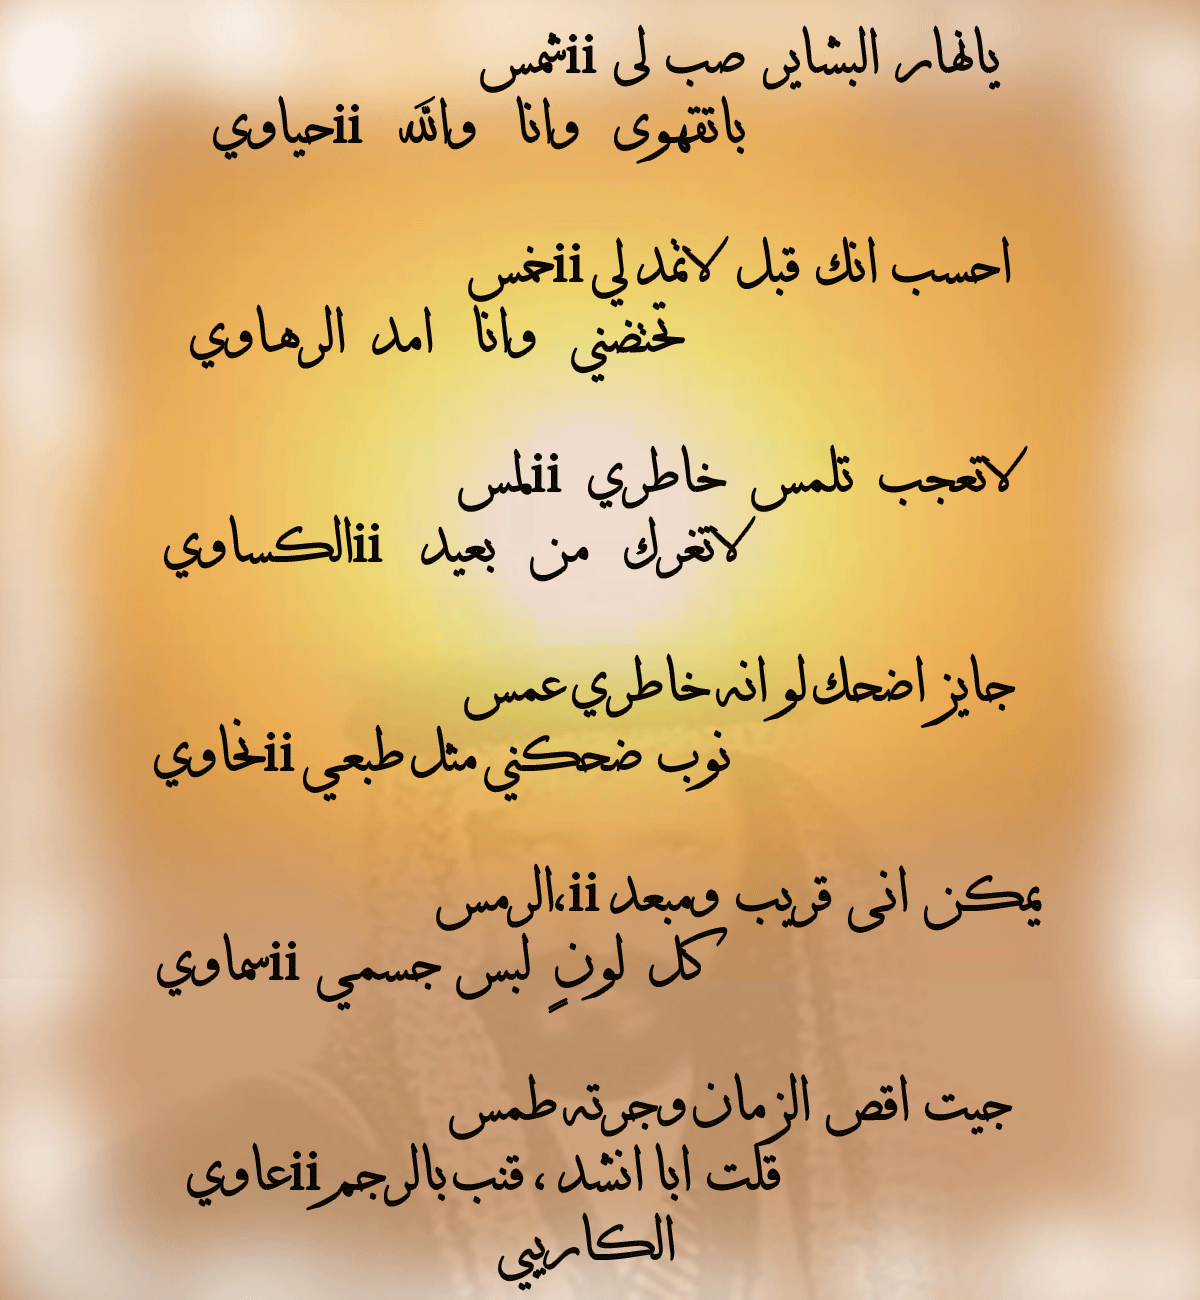 يانهار البشاير صب لى iiشمس
باتقهوى وانا والله iiحياوي
احسب انك قبل لاتمد لي iiخمس
تحتضني وانا امد الرهاوي
لاتعجب تلمس خاطري iiلمس
لاتغرك من بعيد iiالكساوي
جايز اضحك لو انه خاطري عمس
نوب ضحكني مثل طبعي iiنخاوي
يمكن انى قريب ومبعد ii،الرمس
كل لونٍ لبس جسمي iiسماوي
جيت اقص الزمان وجرته طمس
قلت ابا انشد ، قنب بالرجم iiعاوي
الكاريبي